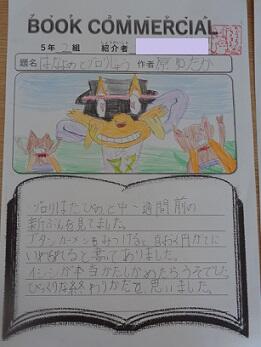 BOOK COMMERCIAL
5年 2組 紹介者
題名 はなよめとゾロリじょう 作者 原 ゆたか
ゾロリはたびの と中 一週間前の
新ぶんを見てました。
ツタンカーメンをみつけると
と書いてありました。
イシシが本当かたしかめたらうそでした。
びっくりな終わりかただと思いました。